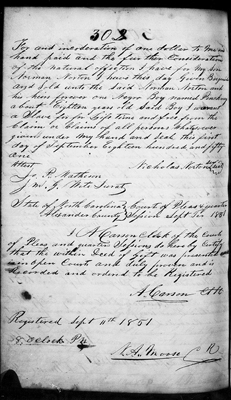 302
For and in consideration of one dollar to me in
hand paid and the further Consideration
of the natural affection I have for My Son
Norman Norton I have this day Given Bargained
and Sold unto the Said Norman Norton and
his heirs forever one Negro Boy named
about Eighteen years old Said Boy I warrant
a Slave for for Life time and free from the
Claim or Claims of all persons whatsoever
given under My hand and Seal this first
day of September Eighteen hundred and fifty
one
Attest Nicholas Norton
J. P. Matheson
J. M. G.
State of North Carolina Court of Pleas & quarter
Alexander County Session Sept 1851
I A Carson Clerk of the Court
of Pleas and quarter Sessions do hereby certify
that the within Deed of Gift was presented
in open Court and duly proven and
recorded and ordered to be Registered
A. Carson Clk
Registered Sept 11th 1851
8 oclock PM